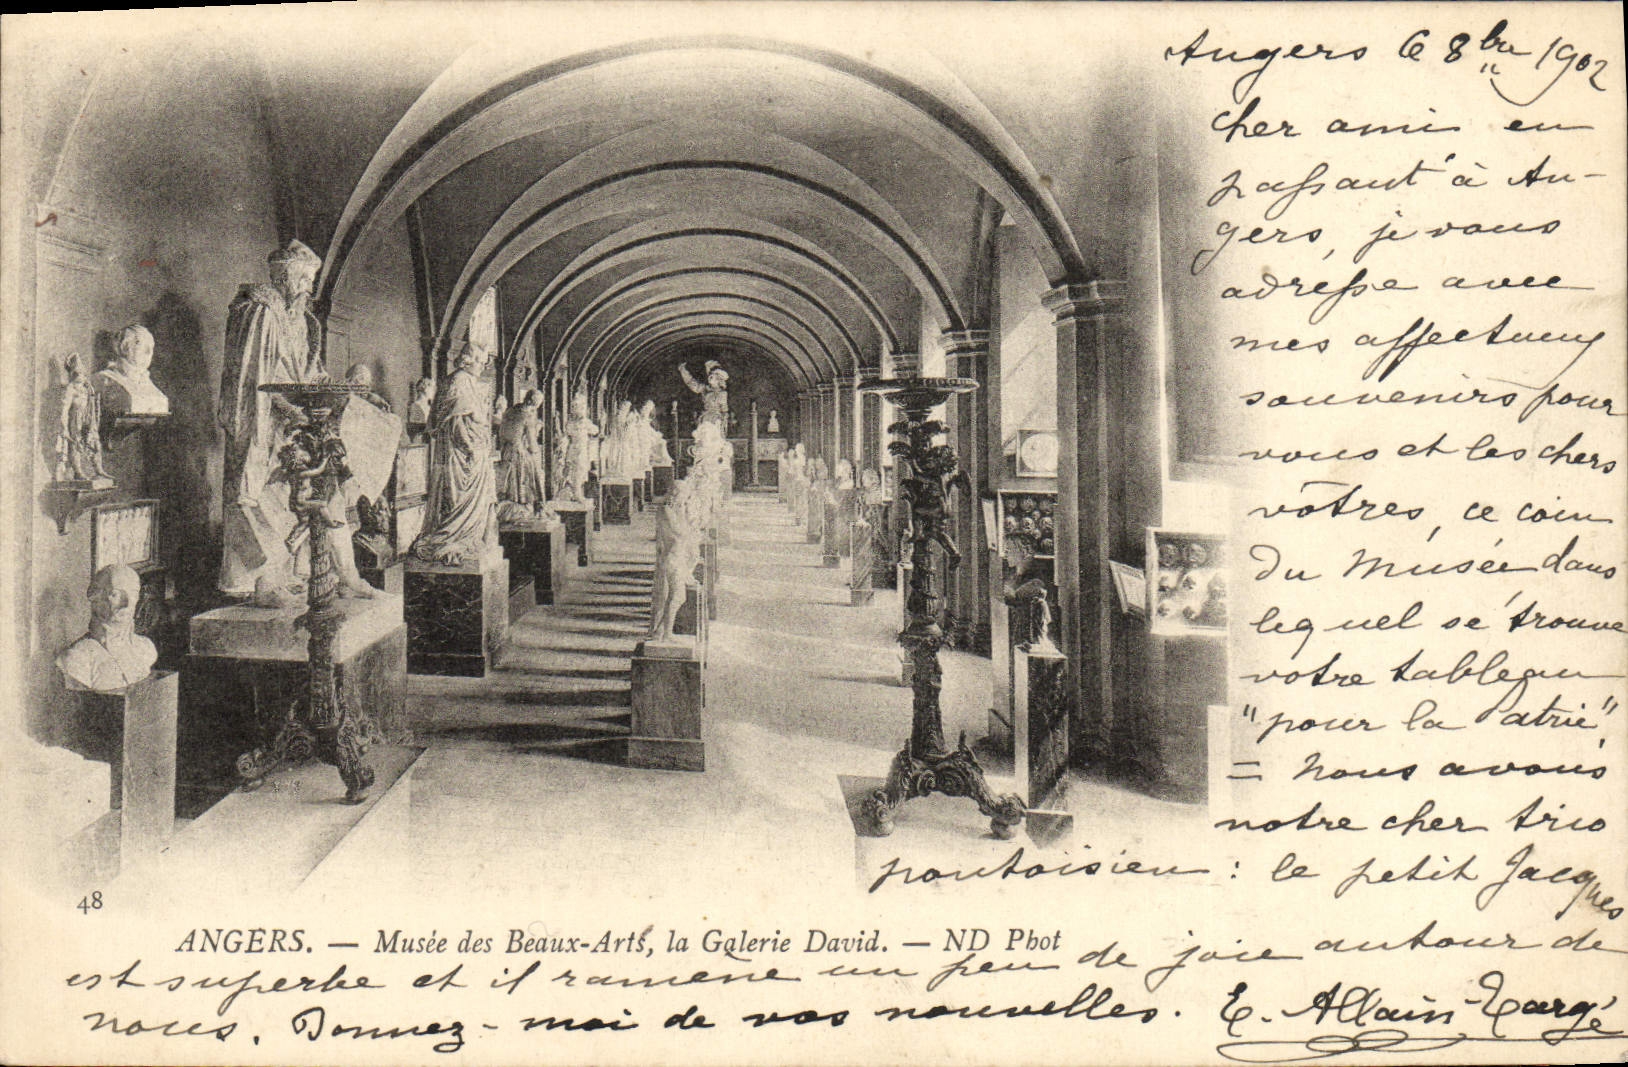 Angers le 8bre 1902
cher ami en
passant à An-
gers, je vous
adresse avec
mes affectueux
souvenirs pour
vous et les chers
vôtres, ce coin
du Musée dans
lequel se trouve
votre tableau
"pour la Patrie",
= Nous avons
notre cher trio
pontoisien : le petit Jacques
48
ANGERS. — Musée des Beaux-Arts, la Galerie David. — ND Phot
est superbe et il ramène un peu de joie autour de
nous. Donnez-moi de vos nouvelles. E. Allain-Targé